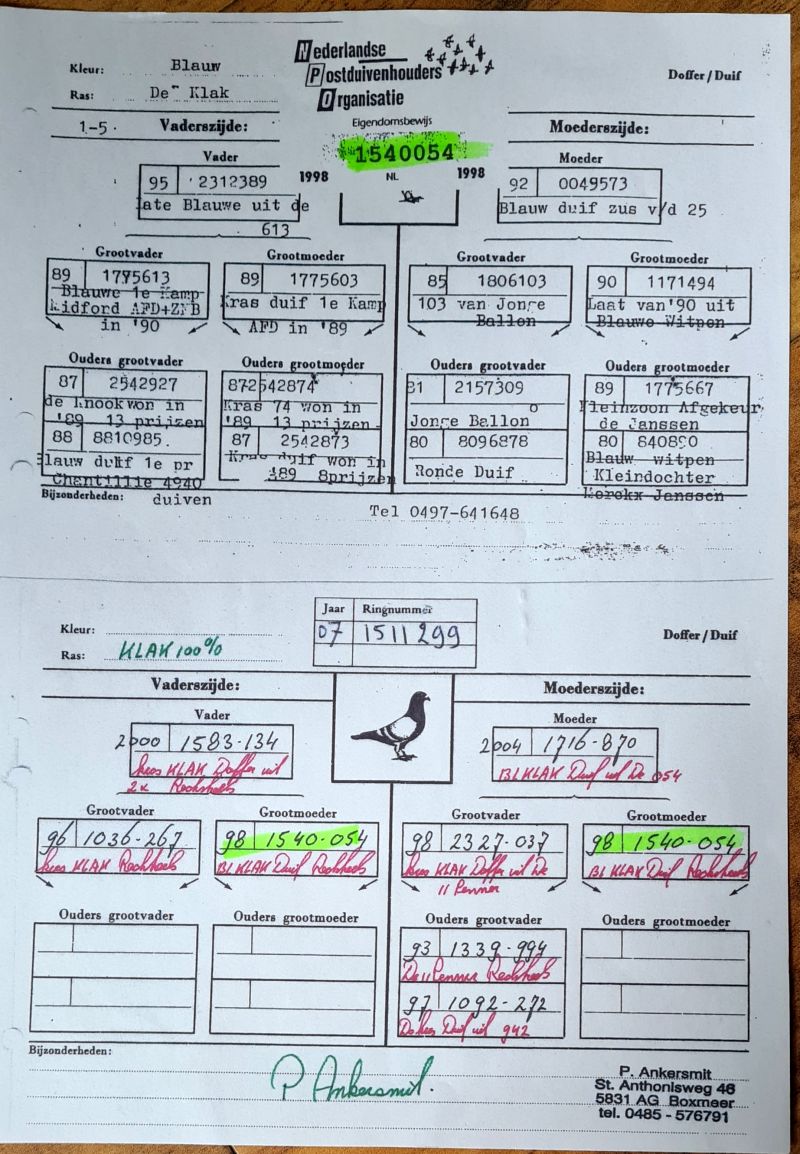 Nederlandse
Postduivenhouders
Organisatie
Kleur: Blauw
Ras: De Klak
Doffer / Duif
Eigendomsbewijs
1540054
1998 NL 1998
1-5. Vaderszijde:
Moederszijde:
Vader
95 2312389
late Blauwe uit de
613
Moeder
92 0049573
Blauw duif zus v/d 25
Grootvader
89 1775613
Blauwe 1e Kamp
Lidford AFD+ZNB
in '90
Grootmoeder
89 1775603
Kras duif 1e Kamp
AFD in '89
Grootvader
85 1806103
103 van Jonge
Ballon
Grootmoeder
90 1171494
Laat van '90 uit
Blauwe Witpen
Ouders grootvader
87 2542927
de Knook won in
'89 13 prijzen
88 8810985.
Blauw duif 1e pr
Chantillie 4940
Ouders grootmoeder
87 2542874
Kras 74 won in
'89 13 prijzen
87 2542873
Kras duif won in
'89 8prijzen
Ouders grootvader
81 2157309
Jonge Ballon
80 8096878
Ronde Duif
Ouders grootmoeder
89 1775667
Kleinzoon Afgekeur
de Janssen
80 840890
Blauw witpen
Kleindochter
Kerckx Janssen
Bijzonderheden: duiven
Tel 0497-641648
Jaar Ringnummer
07 1511299
Kleur:
Ras: KLAK 100%
Doffer / Duif
Vaderszijde:
Moederszijde:
Vader
2000 1583-134
kras KLAK Doffer uit
2x Rechstreeks
Moeder
2004 1716-870
BL KLAK Duif uit De 054
Grootvader
96 1036-267
kras KLAK Rechstreeks
Grootmoeder
98 1540-054
BL KLAK Duif Rechstreeks
Grootvader
98 2327-037
kras KLAK Doffer uit De
11 Penner
Grootmoeder
98 1540-054
BL KLAK Duif Rechstreeks
Ouders grootvader
Ouders grootmoeder
Ouders grootvader
93 1339-994
De 11 Penner Rechstreeks
97 1092-272
De kras Duif uit 942
Ouders grootmoeder
Bijzonderheden:
P Ankersmit.
P. Ankersmit
St. Anthonisweg 46
5831 AG Boxmeer
tel. 0485 - 576791